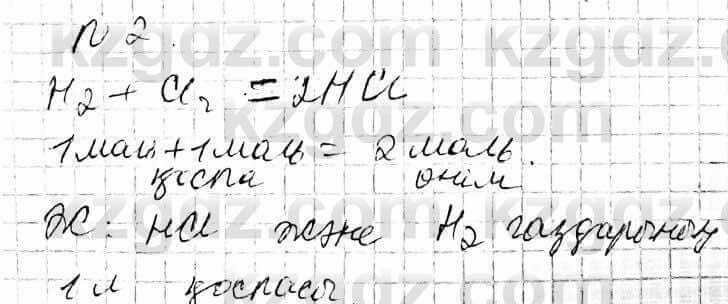 N 2.
H₂ + Cl₂ = 2HCl
1моль + 1моль = 2 моль.
қоспа өнім
Ж: HCl және H₂ газдарының
1 л қоспасы
kzgdz.com